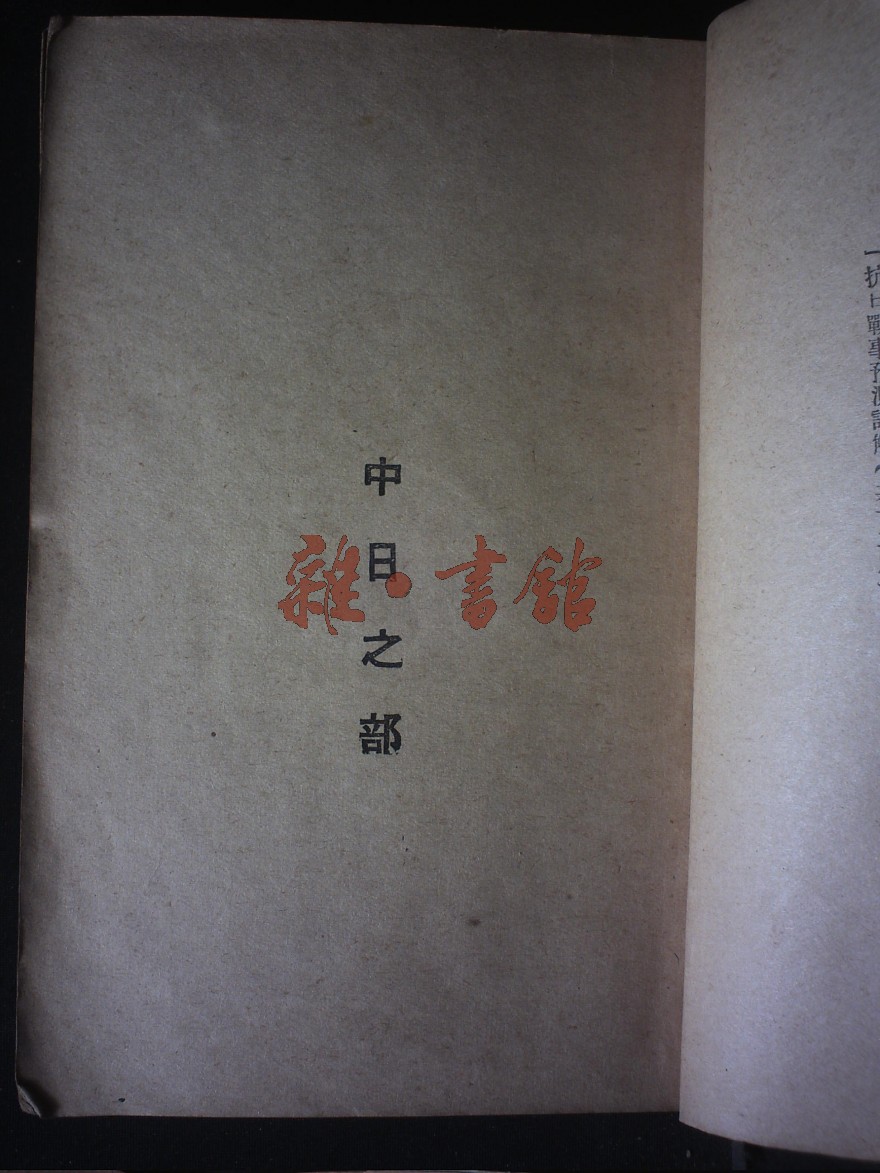 中日之部
雜·書館
一抗日戰事預測